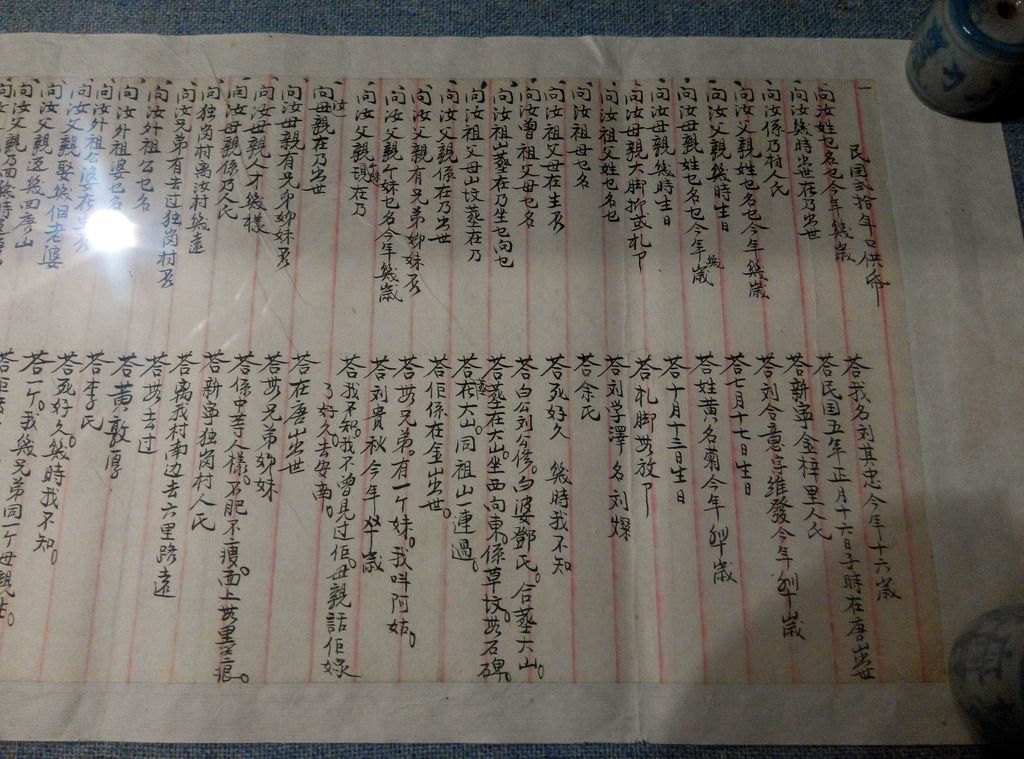 一 民国弍拾年口供帋
问汝姓乜名乜今年幾歲
答我名刘其忠今年十六歲
问汝幾時出世在乃出世
答民国五年正月十六日子時在唐山出世
问汝係乃村人氏
答新寧金梓里人氏
问汝父親姓乜名乜今年幾歲
答刘合意字維發今年
问汝父親幾時生日
答七月十七日生日
问汝母親姓乜名乜今年幾歲
答姓黄名菊今年
问汝母親幾時生日
答十月十三日生日
问汝母親大脚抑或札脚
答札脚放了
问汝祖父姓乜名乜
答刘学澤名刘燦
问汝祖母乜名
答余氏
问汝祖父母在生否
答死好久 幾時我不知
问汝曾祖父母乜名
答白公刘公修。白婆鄧氏。合葬大山。
问汝祖山葬在乃坐乜向乜
答葬在大山。坐西向東。係草坟。冇石碑。
问汝祖父母山坟葬在乃
答在大山。同祖山連過。
问汝父親係在乃出世
答佢係在金山出世。
问汝父親有兄弟姊妹否
答冇兄弟。有一个妹。我叫阿姑。
问汝父親个妹乜名今年幾歲
答刘貴秋 今年 歲
问汝父親現在乃
答我不知。我不曾見过佢。母親話佢
了好久去安南。
问汝母親在乃出世
答在唐山出世
问汝母親有兄弟姊妹否
答冇兄弟姊妹
问汝母親係乃人氏
答新寧独崗村人氏
问汝母親人才幾樣
答係中等人樣。不肥不瘦。面上冇黑痕。
问独崗村離汝村幾遠
答離我村南边去六里路遠
问汝兄弟有去过独崗村否
答冇去过
问汝外祖公乜名
答黄敦厚
问汝外祖婆乜名
答李氏
问汝外祖公婆在
答死好久。幾時我不知。
问汝父親娶幾个老婆
答一个。我幾兄弟同一个母親生。
问汝父親返幾回唐山